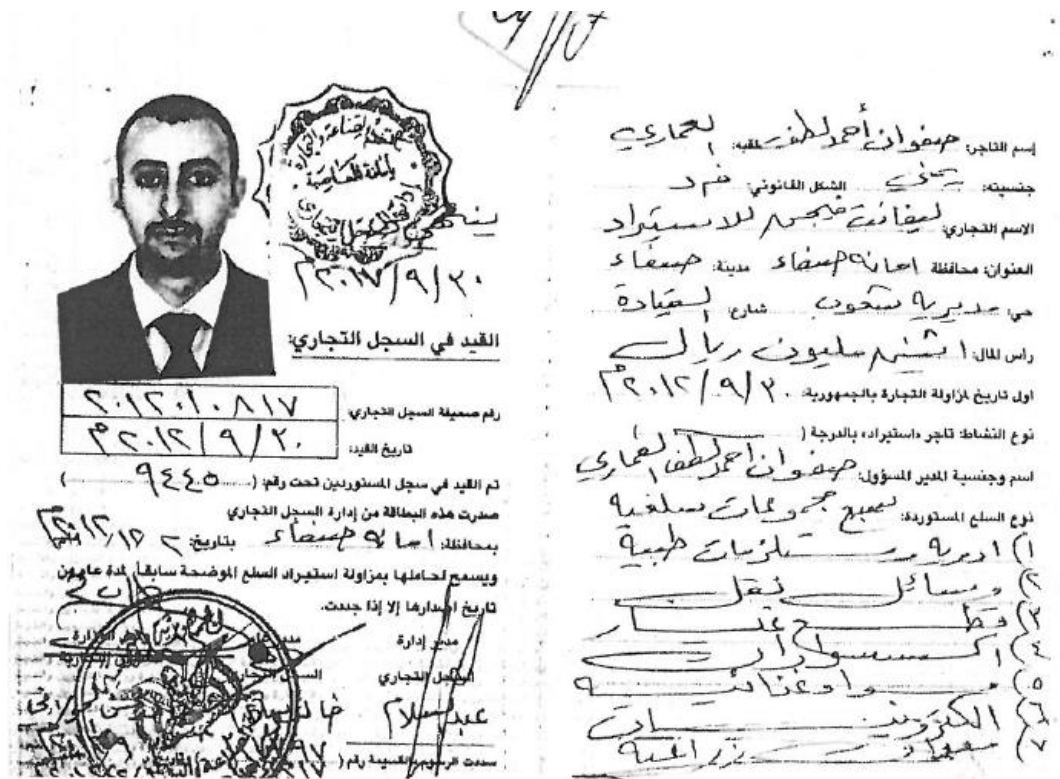 إسم التاجر: صفوان أحمد لطف لقبه: العماري
جنسيته: يمني الشكل القانوني: فرد
الاسم التجاري: ليفانت فيجن للاستيراد
العنوان: محافظة امانه صنعاء مدينة: صنعاء
حي: مديرية شعوب شارع: السيادة
رأس المال: اثنين مليون ريال
اول تاريخ لمزاولة التجارة بالجمهورية: ٢٠١٢/٩/٣٠م
نوع النشاط: تاجر «استيراد» بالدرجة ( )
اسم وجنسية المدير المسؤول: صفوان احمد لطف العماري
نوع السلع المستوردة: سبع مجموعات سلعيه
١) ادويه ومستلزمات طبية
٢) وسائل نقل
٣) قطع غيار
٤) اكسسوارات
٥) مواد غذائيه
٦) الكترونيات
٧) معدات زراعية
ينتهي
٢٠١٧/٩/٣٠م
القيد في السجل التجاري:
رقم صحيفة السجل التجاري: ٢٠١٢٠١٠٨١٧
تاريخ القيد: ٢٠١٢/٩/٣٠م
تم القيد في سجل المستوردين تحت رقم: ( ٩٤٤٥ )
صدرت هذه البطاقة من إدارة السجل التجاري
بمحافظة: امانه صنعاء بتاريخ:
ويسمح لحاملها بمزاولة استيراد السلع الموضحة سابقاً لمدة عام من
تاريخ اصدارها إلا إذا جددت.
مدير إدارة
السجل التجاري
عبدالسلام
سددت الرسوم بالقسيمة رقم (